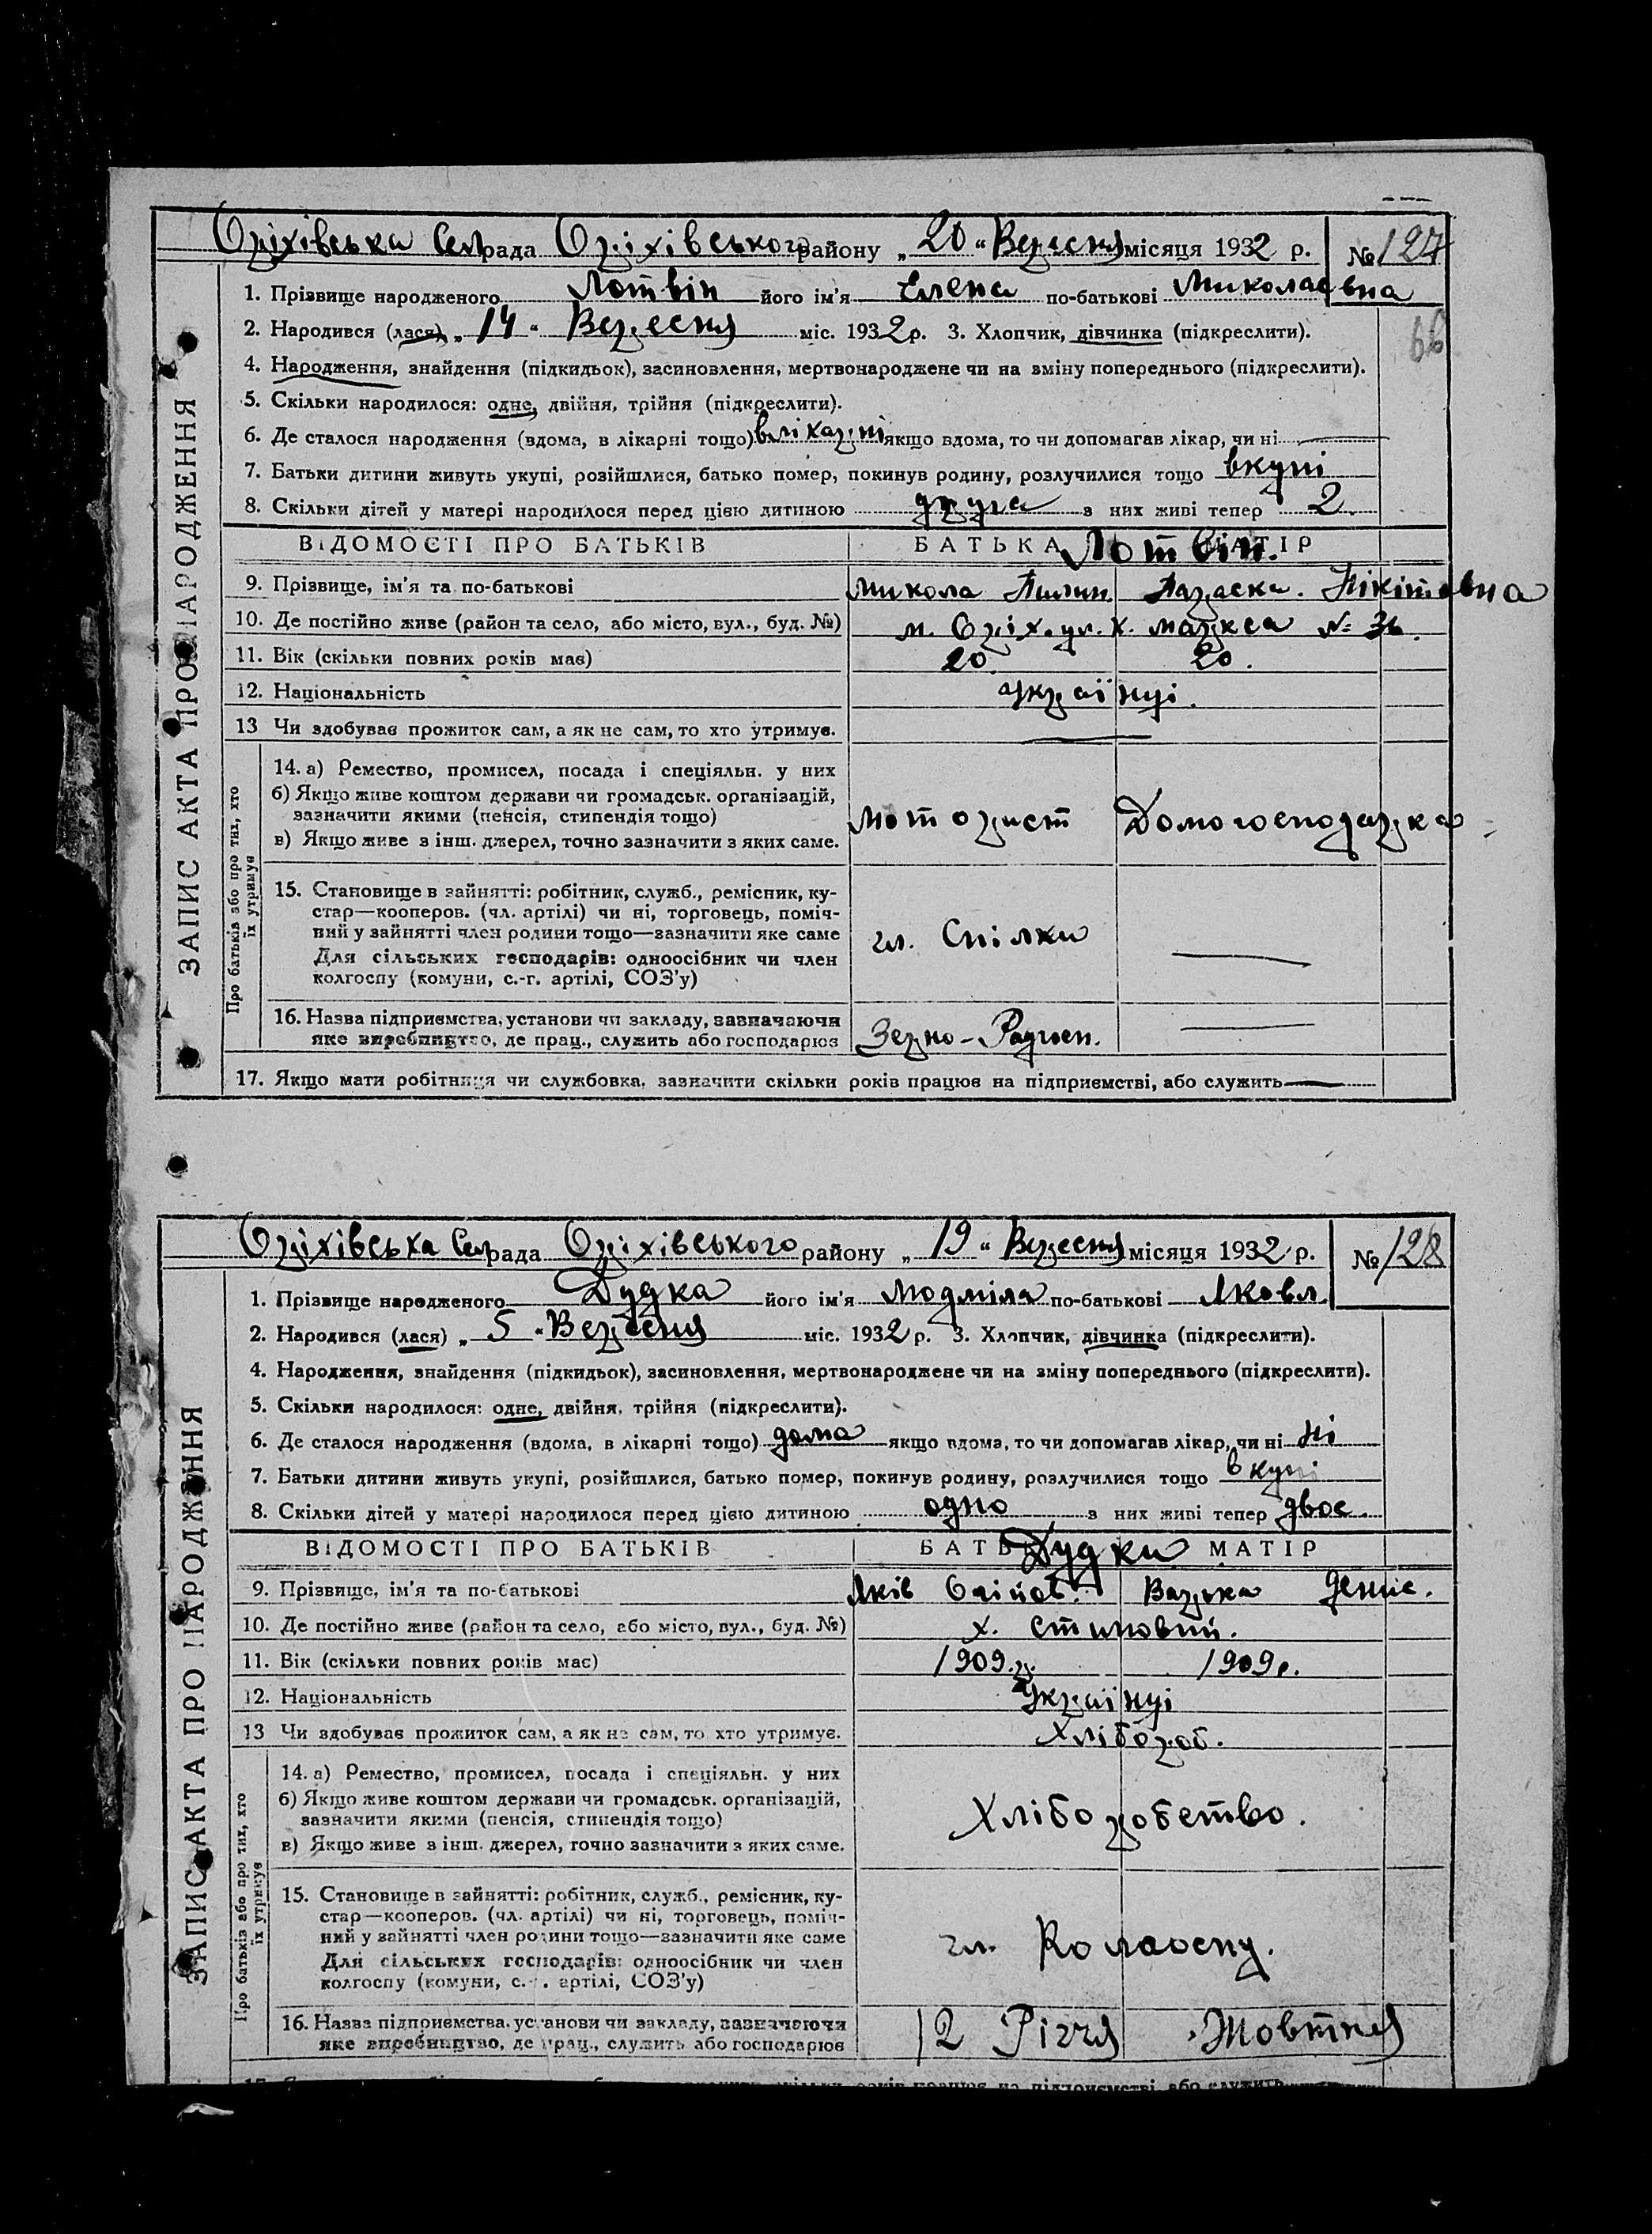 Оріхівська Сельрада Оріхівського району „20“ Вересня місяця 1932 р. № 127
1. Прізвище народженого Лотвін його ім'я Елена по-батькові Миколаевна
66
2. Народився (лася) „14“ Вересня міс. 1932 р. 3. Хлопчик, дівчинка (підкреслити).
4. Народження, знайдення (підкидьок), засиновлення, мертвонароджене чи на зміну попереднього (підкреслити).
5. Скільки народилося: одне, двійня, трійня (підкреслити).
6. Де сталося народження (вдома, в лікарні тощо) в лікарні якщо вдома, то чи допомагав лікар, чи ні
7. Батьки дитини живуть укупі, розійшлися, батько помер, покинув родину, розлучилися тощо вкупі
8. Скільки дітей у матері народилося перед цією дитиною друга з них живі тепер 2
ВІДОМОСТІ ПРО БАТЬКІВ БАТЬКА Лотвін. МАТІР
9. Прізвище, ім'я та по-батькові Микола Пилип. Параска. Нікітовна
10. Де постійно живе (район та село, або місто, вул., буд. №) м. Оріх. ул. К. Маркса № 36.
11. Вік (скільки повних років має) 20 20.
12. Національність українці.
13 Чи здобуває прожиток сам, а як не сам, то хто утримує.
ЗАПИС АКТА ПРО НАРОДЖЕННЯ
Про батьків або про тих, хто їх утримує
14. а) Ремество, промисел, посада і спеціяльн. у них
б) Якщо живе коштом держави чи громадськ. організацій,
зазначити якими (пенсія, стипендія тощо)
Моторист Домогосподарка
в) Якщо живе з інш. джерел, точно зазначити з яких саме.
15. Становище в зайнятті: робітник, служб., ремісник, ку-
стар—кооперов. (чл. артілі) чи ні, торговець, поміч-
ний у зайнятті член родини тощо—зазначити яке саме
чл. Спілки
Для сільських господарів: одноосібник чи член
колгоспу (комуни, с.-г. артілі, СОЗ'у)
16. Назва підприємства, установи чи закладу, зазначаючи
яке виробництво, де прац., служить або господарює Зерно-Радгосп.
17. Якщо мати робітниця чи службовка, зазначити скільки років працює на підприємстві, або служить
Оріхівська Сельрада Оріхівського району „19“ Вересня місяця 1932 р. № 128
1. Прізвище народженого Дудка його ім'я Людміла по-батькові Яковл.
2. Народився (лася) „5“ Вересня міс. 1932 р. 3. Хлопчик, дівчинка (підкреслити).
4. Народження, знайдення (підкидьок), засиновлення, мертвонароджене чи на зміну попереднього (підкреслити).
5. Скільки народилося: одне, двійня, трійня (підкреслити).
6. Де сталося народження (вдома, в лікарні тощо) дома якщо вдома, то чи допомагав лікар, чи ні ні
7. Батьки дитини живуть укупі, розійшлися, батько помер, покинув родину, розлучилися тощо вкупі
8. Скільки дітей у матері народилося перед цією дитиною одно з них живі тепер двое.
ВІДОМОСТІ ПРО БАТЬКІВ БАТЬКА Дудки МАТІР
9. Прізвище, ім'я та по-батькові Яків Варька Денис.
10. Де постійно живе (район та село, або місто, вул., буд. №) х.
11. Вік (скільки повних років має) 1909 р. 1909 р.
12. Національність Українці
13 Чи здобуває прожиток сам, а як не сам, то хто утримує. Хлібороб.
ЗАПИС АКТА ПРО НАРОДЖЕННЯ
Про батьків або про тих, хто їх утримує
14. а) Ремество, промисел, посада і спеціяльн. у них
б) Якщо живе коштом держави чи громадськ. організацій,
зазначити якими (пенсія, стипендія тощо)
Хліборобство.
в) Якщо живе з інш. джерел, точно зазначити з яких саме.
15. Становище в зайнятті: робітник, служб., ремісник, ку-
стар—кооперов. (чл. артілі) чи ні, торговець, поміч-
ний у зайнятті член родини тощо—зазначити яке саме
чл. Колгоспу.
Для сільських господарів: одноосібник чи член
колгоспу (комуни, с.-г. артілі, СОЗ'у)
16. Назва підприємства, установи чи закладу, зазначаючи
яке виробництво, де прац., служить або господарює 12 Річчя Жовтня